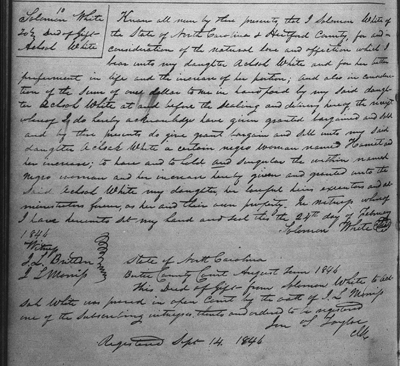 Solomon White
To } Deed of Gift
Achsol White
Know all men by these presents that I Solomon White of
the State of North Carolina & Hertford County, for and in
consideration of the natural love and affection which I
bear unto my daughter Achsol White and for her better
preferment in life and the increase of her portion; and also in considera-
tion of the sum of one dollar to me in hand paid by my said daugh-
ter Achsol White at and before the sealing and delivery hereof the receipt
whereof I do hereby acknowledge have given granted bargained and sold
and by these presents do give grant bargain and sell unto my said
daughter Achsol White a certain negro woman named and
her increase; to have and to hold and singular the within named
negro woman and her increase hereby given and granted unto the
said Achsol White my daughter, her lawful heirs executors and ad-
ministrators forever, as her and their own property. In witness whereof
I have hereunto set my hand and seal this the 24th day of February
1846 Solomon White
Witness
J. L. Britton
J L
State of North Carolina
Bertie County Court August Term 1846
This Deed of Gift from Solomon White to Ach-
sol White was proved in open Court by the oath of J. L.
one of the Subscribing witnesses thereto and ordered to be registered
Jon S Taylor
Clk
Registered Sept 14. 1846